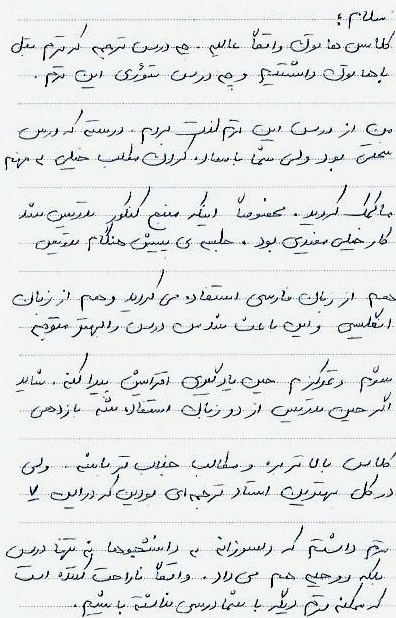 سلام؛
کلاس هاتون واقعاً عالیه. چه درس ترجمه که ترم قبل
باهاتون داشتیم و چه درس تئوری این ترم.
من از درس این ترم لذت بردم. درسته که درس
سختی بود ولی شما با ساده کردن مطلب خیلی به فهم
ما کمک کردید. مخصوصاً اینکه منبع کنکور تدریس شد
کار خیلی مفیدی بود. جلسه ی پیش هنگام تدریس
هم از زبان فارسی استفاده می کردید و هم از زبان
انگلیسی و این باعث شد من درس را بهتر متوجه
شوم و تمرکزم حین یادگیری افزایش پیدا کنه. شاید
اگر حین تدریس از دو زبان استفاده شه بازدهی
کلاس بالاتر بره و مطالب جذاب تر باشه. ولی
در کل بهترین استاد ترجمه ای بودین که در این ۷
ترم داشتم که دلسوزانه به دانشجوها نه تنها درس
بلکه روحیه هم می داد. واقعاً ناراحت کننده است
که ممکنه ترم دیگر با شما درسی نداشته باشیم.